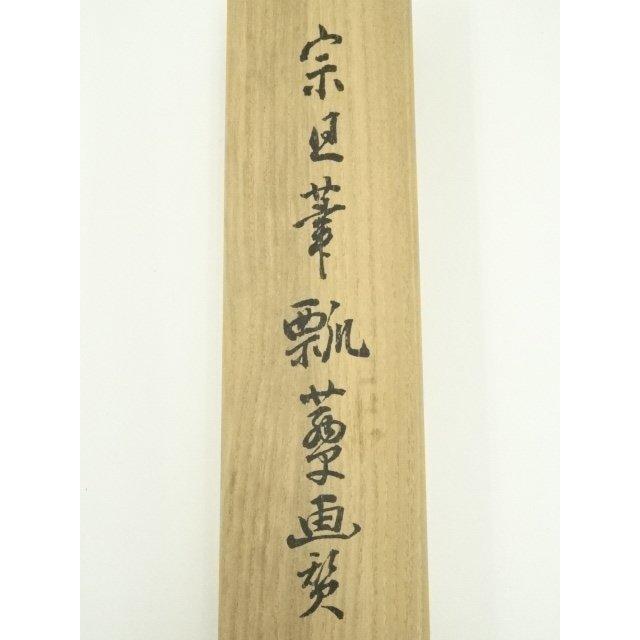 宗旦筆瓢蕈画賛